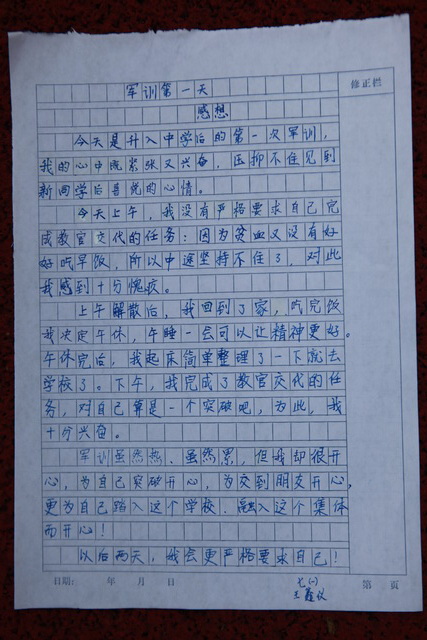 修正栏
军训第一天
感想
今天是升入中学后的第一次军训,
我的心中既紧张又兴奋,压抑不住见到
新同学后喜悦的心情。
今天上午,我没有严格要求自己完
成教官交代的任务:因为贫血又没有好
好吃早饭,所以中途坚持不住了,对此
我感到十分愧疚。
上午解散后,我回到了家,吃完饭
我决定午休,午睡一会可以让精神更好。
午休完后,我起床简单整理了一下就去
学校了。下午,我完成了教官交代的任
务,对自己算是一个突破吧,为此,我
十分兴奋。
军训虽然热、虽然累,但我却很开
心,为自己突破开心,为交到朋友开心,
更为自己踏入这个学校、融入这个集体
而开心!
以后两天,我会更严格要求自己!
日期: 年 月 日 第 页
七(一)
王